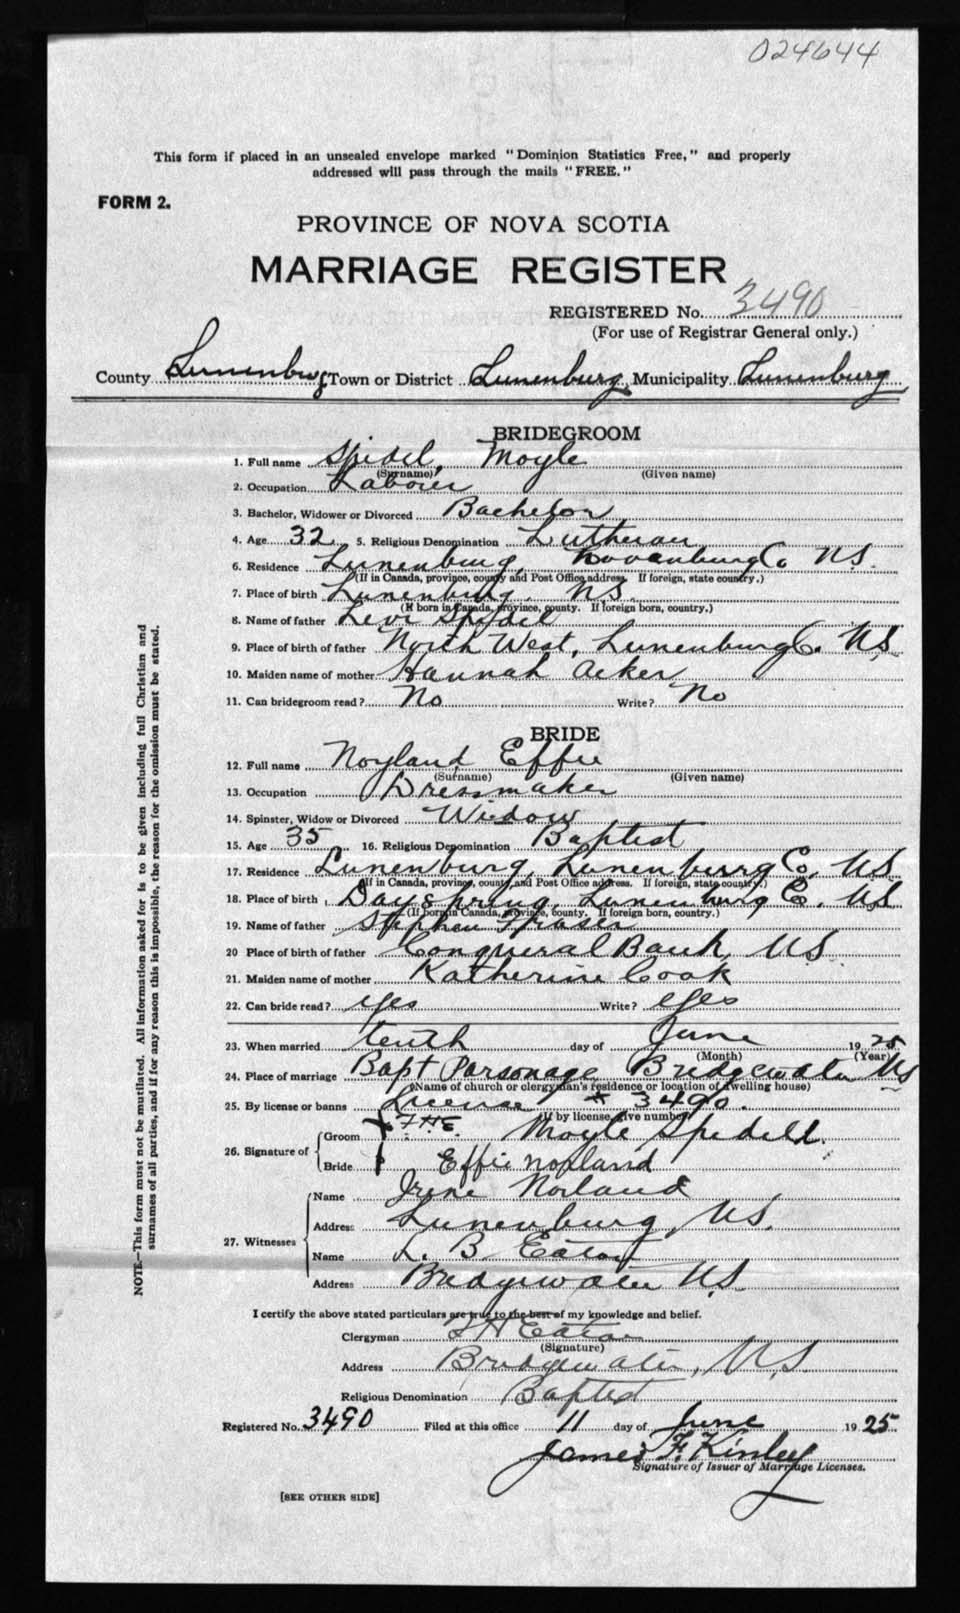 024644
This form if placed in an unsealed envelope marked "Dominion Statistics Free," and properly
addressed will pass through the mails "FREE."
FORM 2.
PROVINCE OF NOVA SCOTIA
MARRIAGE REGISTER
REGISTERED No. 3490
(For use of Registrar General only.)
County Lunenburg Town or District Lunenburg Municipality Lunenburg
BRIDEGROOM
1. Full name Spidel, Moyle
(Surname) (Given name)
2. Occupation Laborer
3. Bachelor, Widower or Divorced Bachelor
4. Age 32 5. Religious Denomination Lutheran
6. Residence Lunenburg, Lunenburg Co NS.
(If in Canada, province, county and Post Office address. If foreign, state country.)
7. Place of birth Lunenburg. NS.
(If born in Canada, province, county. If foreign born, country.)
8. Name of father Levi Spidel
9. Place of birth of father North West, Lunenburg Co. NS
10. Maiden name of mother Hannah Acker
11. Can bridegroom read? No Write? No
BRIDE
12. Full name Noyland Effie
(Surname) (Given name)
13. Occupation Dressmaker
14. Spinster, Widow or Divorced Widow
15. Age 35 16. Religious Denomination Baptist
17. Residence Lunenburg, Lunenburg Co, NS
(If in Canada, province, county and Post Office address. If foreign, state country.)
18. Place of birth Dayspring, Lunenburg Co. NS
(If born in Canada, province, county. If foreign born, country.)
19. Name of father Stephen Fraser
20 Place of birth of father Conqueral Bank, NS
21. Maiden name of mother Katherine Cook
22. Can bride read? yes Write? yes
23. When married tenth day of June 1925
(Month) (Year)
24. Place of marriage Bapt Parsonage Bridgewater NS
(Name of church or clergyman's residence or location of dwelling house)
25. By license or banns License # 3490.
(If by license, give number)
26. Signature of Groom X F.H.E. Moyle Spidell.
Bride Effie Norland
27. Witnesses Name Irene Norland
Address Lunenburg, NS.
Name L. B. Eaton
Address Bridgewater NS
I certify the above stated particulars are true to the best of my knowledge and belief.
Clergyman FH Eaton
(Signature)
Address Bridgewater, NS
Religious Denomination Baptist
Registered No. 3490 Filed at this office 11 day of June 1925
James F. Kinley
Signature of Issuer of Marriage Licenses.
[SEE OTHER SIDE]
NOTE—This form must not be mutilated. All information asked for is to be given including full Christian and
surnames of all parties, and if for any reason this is impossible, the reason for the omission must be stated.